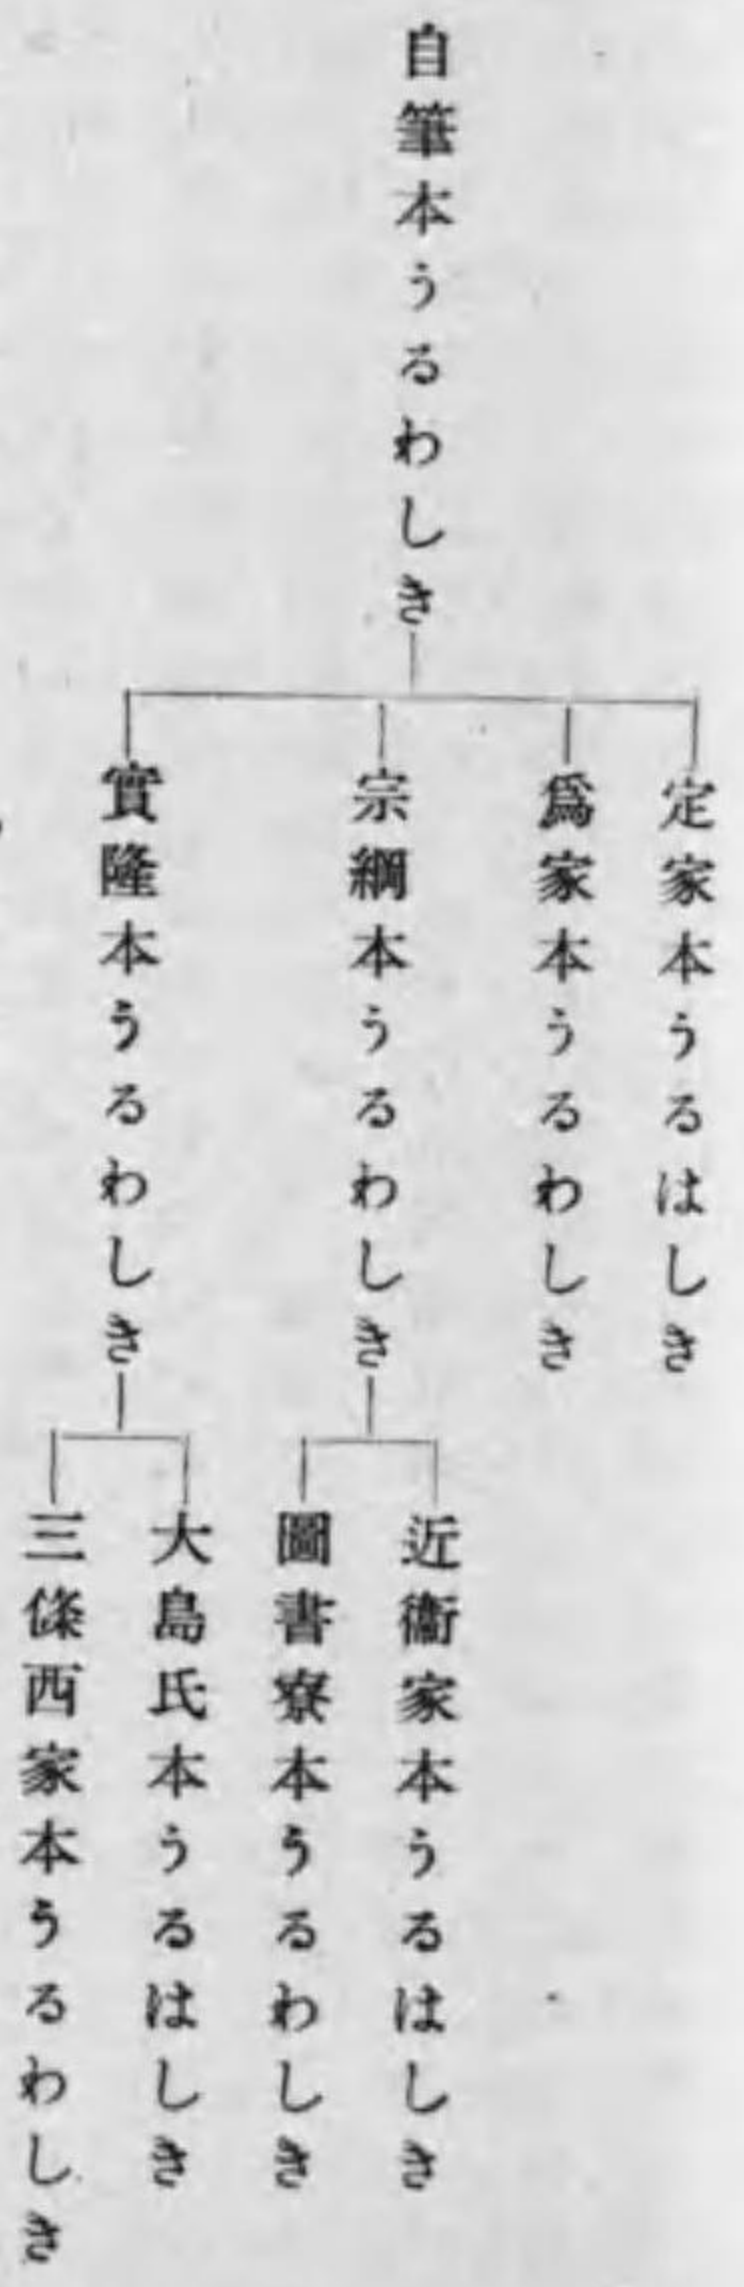 自筆本うるわしき
定家本うるはしき
爲家本うるわしき
宗綱本うるわしき
實隆本うるわしき
近衞家本うるはしき
圖書寮本うるわしき
大島氏本うるはしき
三條西家本うるわしき